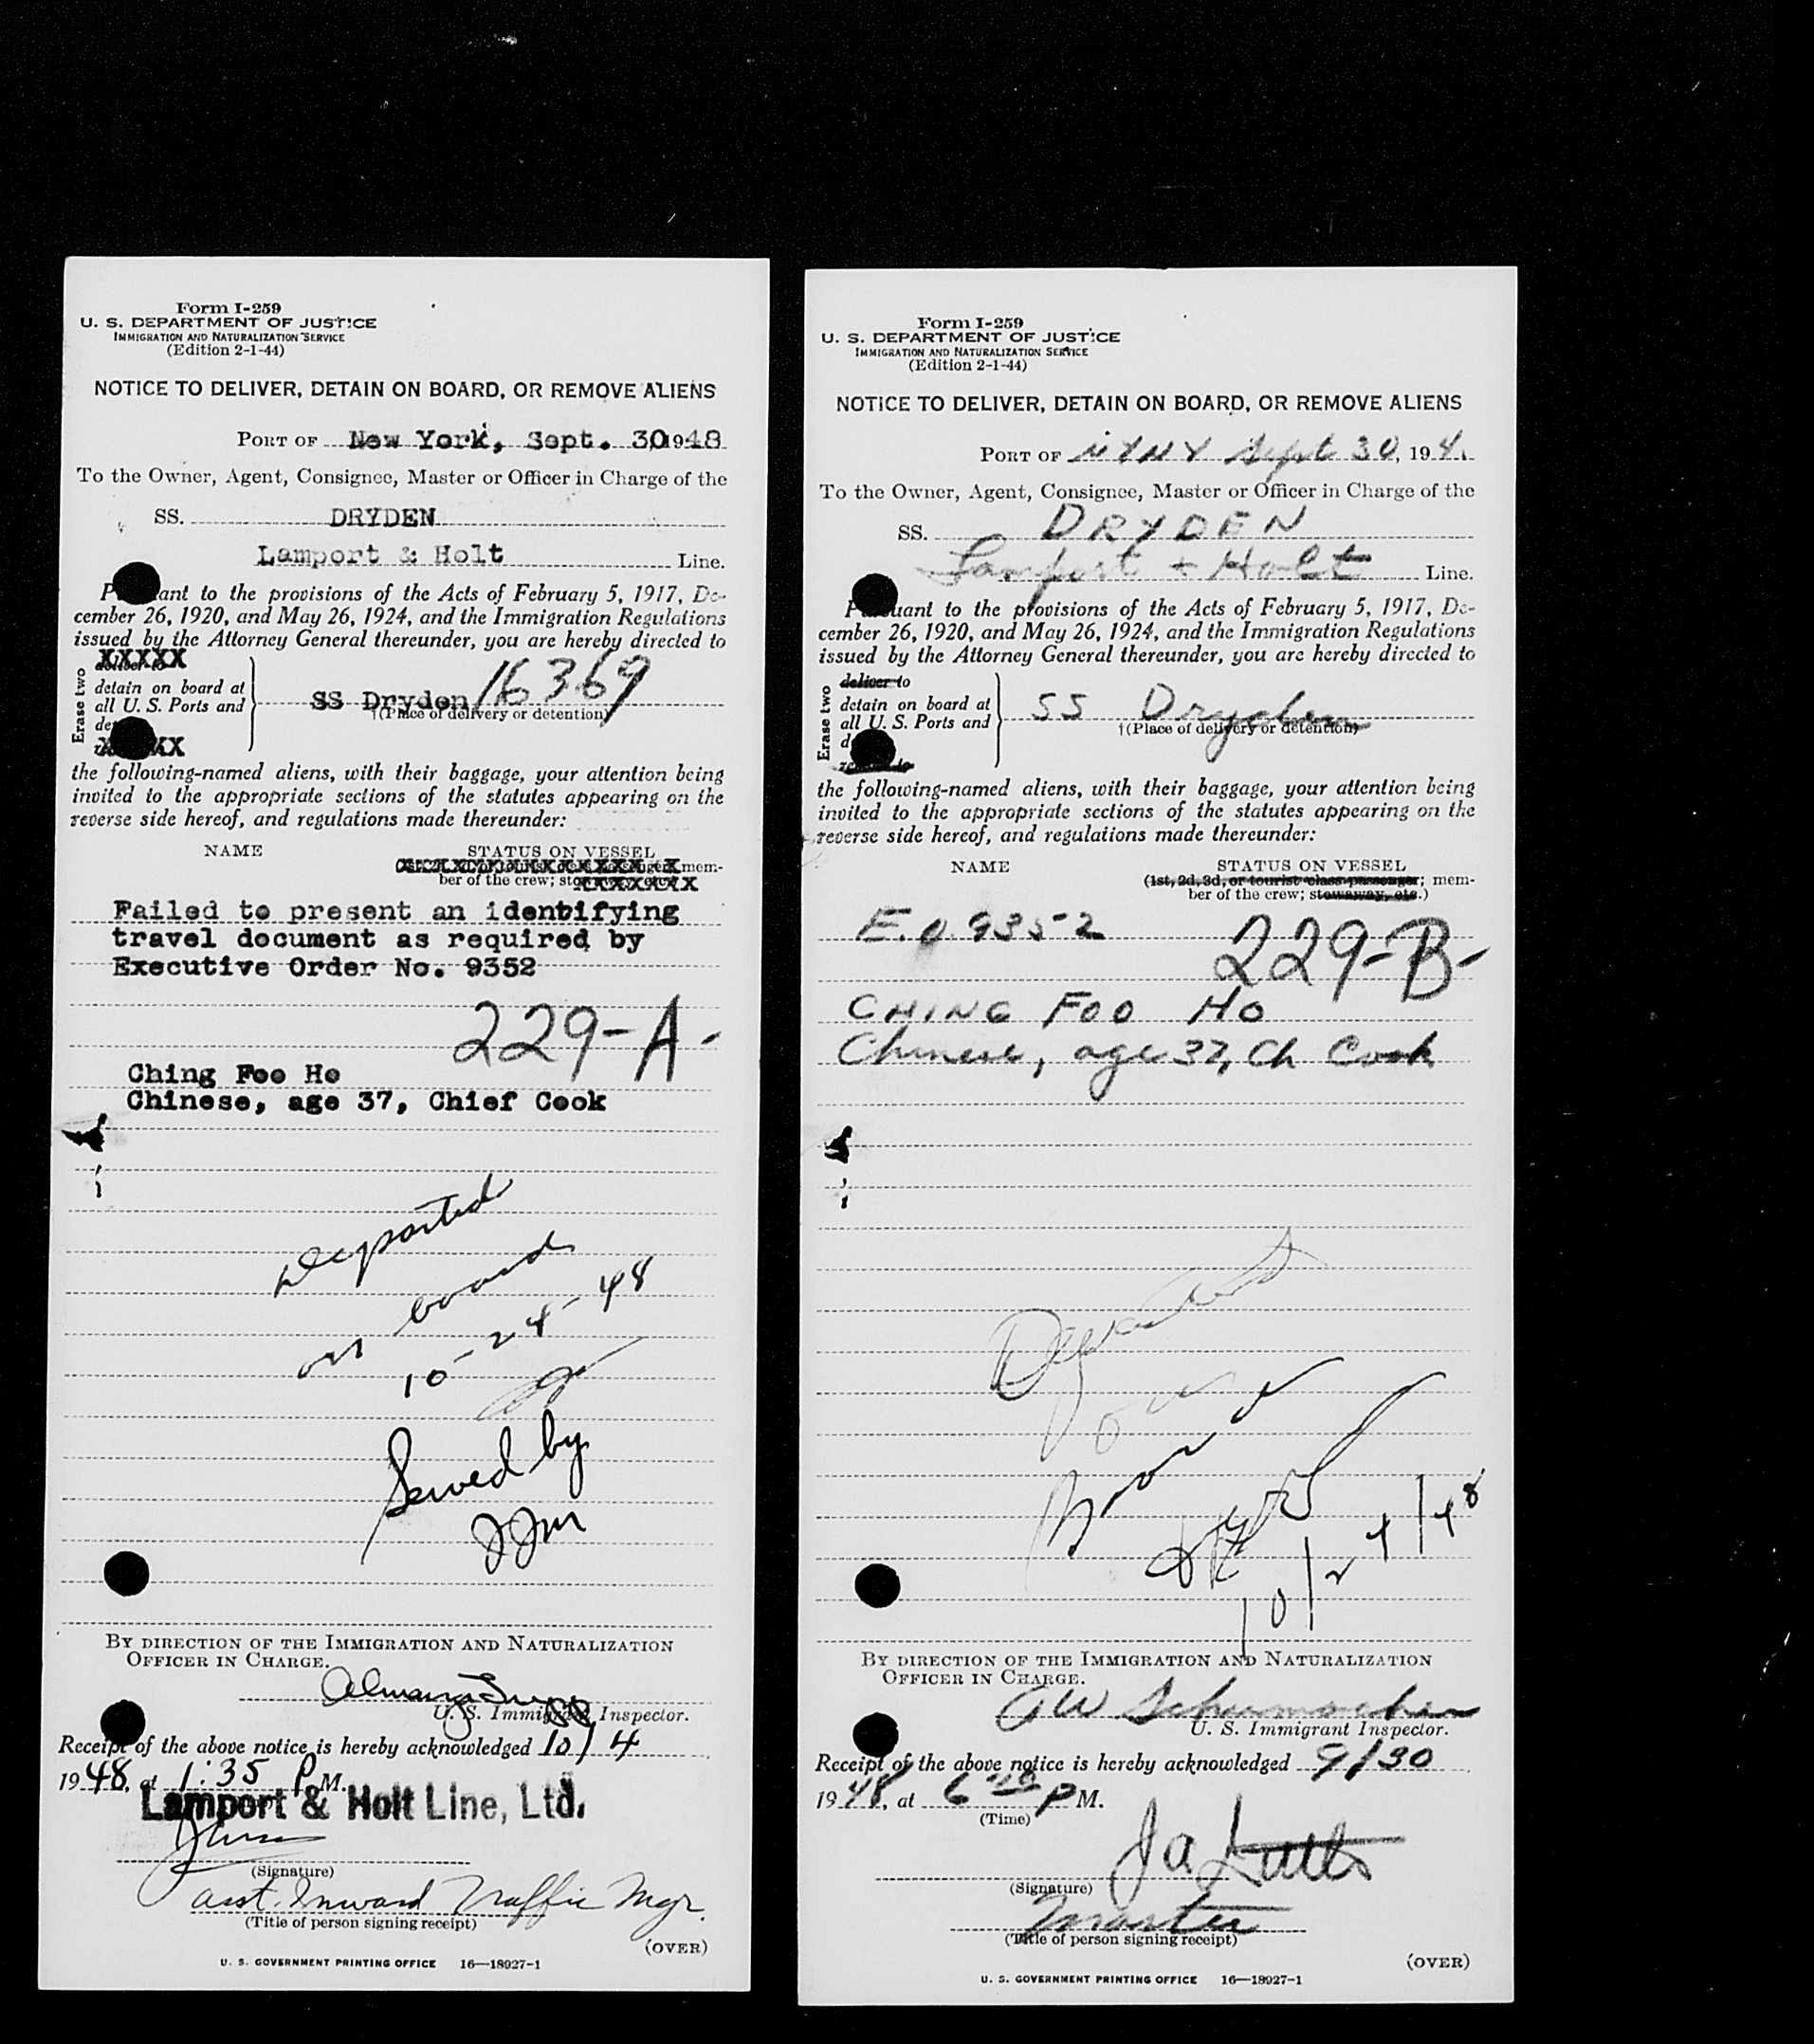 Form I-259
U. S. DEPARTMENT OF JUSTICE
IMMIGRATION AND NATURALIZATION SERVICE
(Edition 2-1-44)
NOTICE TO DELIVER, DETAIN ON BOARD, OR REMOVE ALIENS
PORT OF New York, Sept. 30 1948
To the Owner, Agent, Consignee, Master or Officer in Charge of the
SS. DRYDEN
Lamport & Holt Line.
ant to the provisions of the Acts of February 5, 1917, De-
cember 26, 1920, and May 26, 1924, and the Immigration Regulations
issued by the Attorney General thereunder, you are hereby directed to
Erase two
XXXXX
detain on board at
all U. S. Ports and
de
XX
SS Dryden 16369
†(Place of delivery or detention)
the following-named aliens, with their baggage, your attention being
invited to the appropriate sections of the statutes appearing on the
reverse side hereof, and regulations made thereunder:
NAME STATUS ON VESSEL
mem-
ber of the crew;
Failed to present an identifying
travel document as required by
Executive Order No. 9352
229-A-
Ching Foo Ho
Chinese, age 37, Chief Cook
Deported
on board
10-24-48
Served by
JJM
BY DIRECTION OF THE IMMIGRATION AND NATURALIZATION
OFFICER IN CHARGE.
U. S. Immigrant Inspector.
Receipt of the above notice is hereby acknowledged 10/4
1948, at 1:35 P M.
Lamport & Holt Line, Ltd.
(Signature)
asst. Inward Traffic Mgr.
(Title of person signing receipt)
(OVER)
U. S. GOVERNMENT PRINTING OFFICE 16—18927-1
Form I-259
U. S. DEPARTMENT OF JUSTICE
IMMIGRATION AND NATURALIZATION SERVICE
(Edition 2-1-44)
NOTICE TO DELIVER, DETAIN ON BOARD, OR REMOVE ALIENS
PORT OF NYNY Sept 30, 194
To the Owner, Agent, Consignee, Master or Officer in Charge of the
SS. DRYDEN
Lamport + Holt Line.
uant to the provisions of the Acts of February 5, 1917, De-
cember 26, 1920, and May 26, 1924, and the Immigration Regulations
issued by the Attorney General thereunder, you are hereby directed to
Erase two
deliver to
detain on board at
all U. S. Ports and
d
SS Dryden
†(Place of delivery or detention)
the following-named aliens, with their baggage, your attention being
invited to the appropriate sections of the statutes appearing on the
reverse side hereof, and regulations made thereunder:
NAME STATUS ON VESSEL
(1st, 2d, 3d, or tourist class passenger; mem-
ber of the crew; stowaway, etc.)
E.O. 9352
229-B-
CHING FOO HO
Chinese, age 37, Ch Cook
Deported
on
Board
10/24/48
BY DIRECTION OF THE IMMIGRATION AND NATURALIZATION
OFFICER IN CHARGE.
AW Schumacher
U. S. Immigrant Inspector.
Receipt of the above notice is hereby acknowledged 9/30
1948, at 6 P M.
(Time)
(Signature)
Master
(Title of person signing receipt)
(OVER)
U. S. GOVERNMENT PRINTING OFFICE 16—18927-1